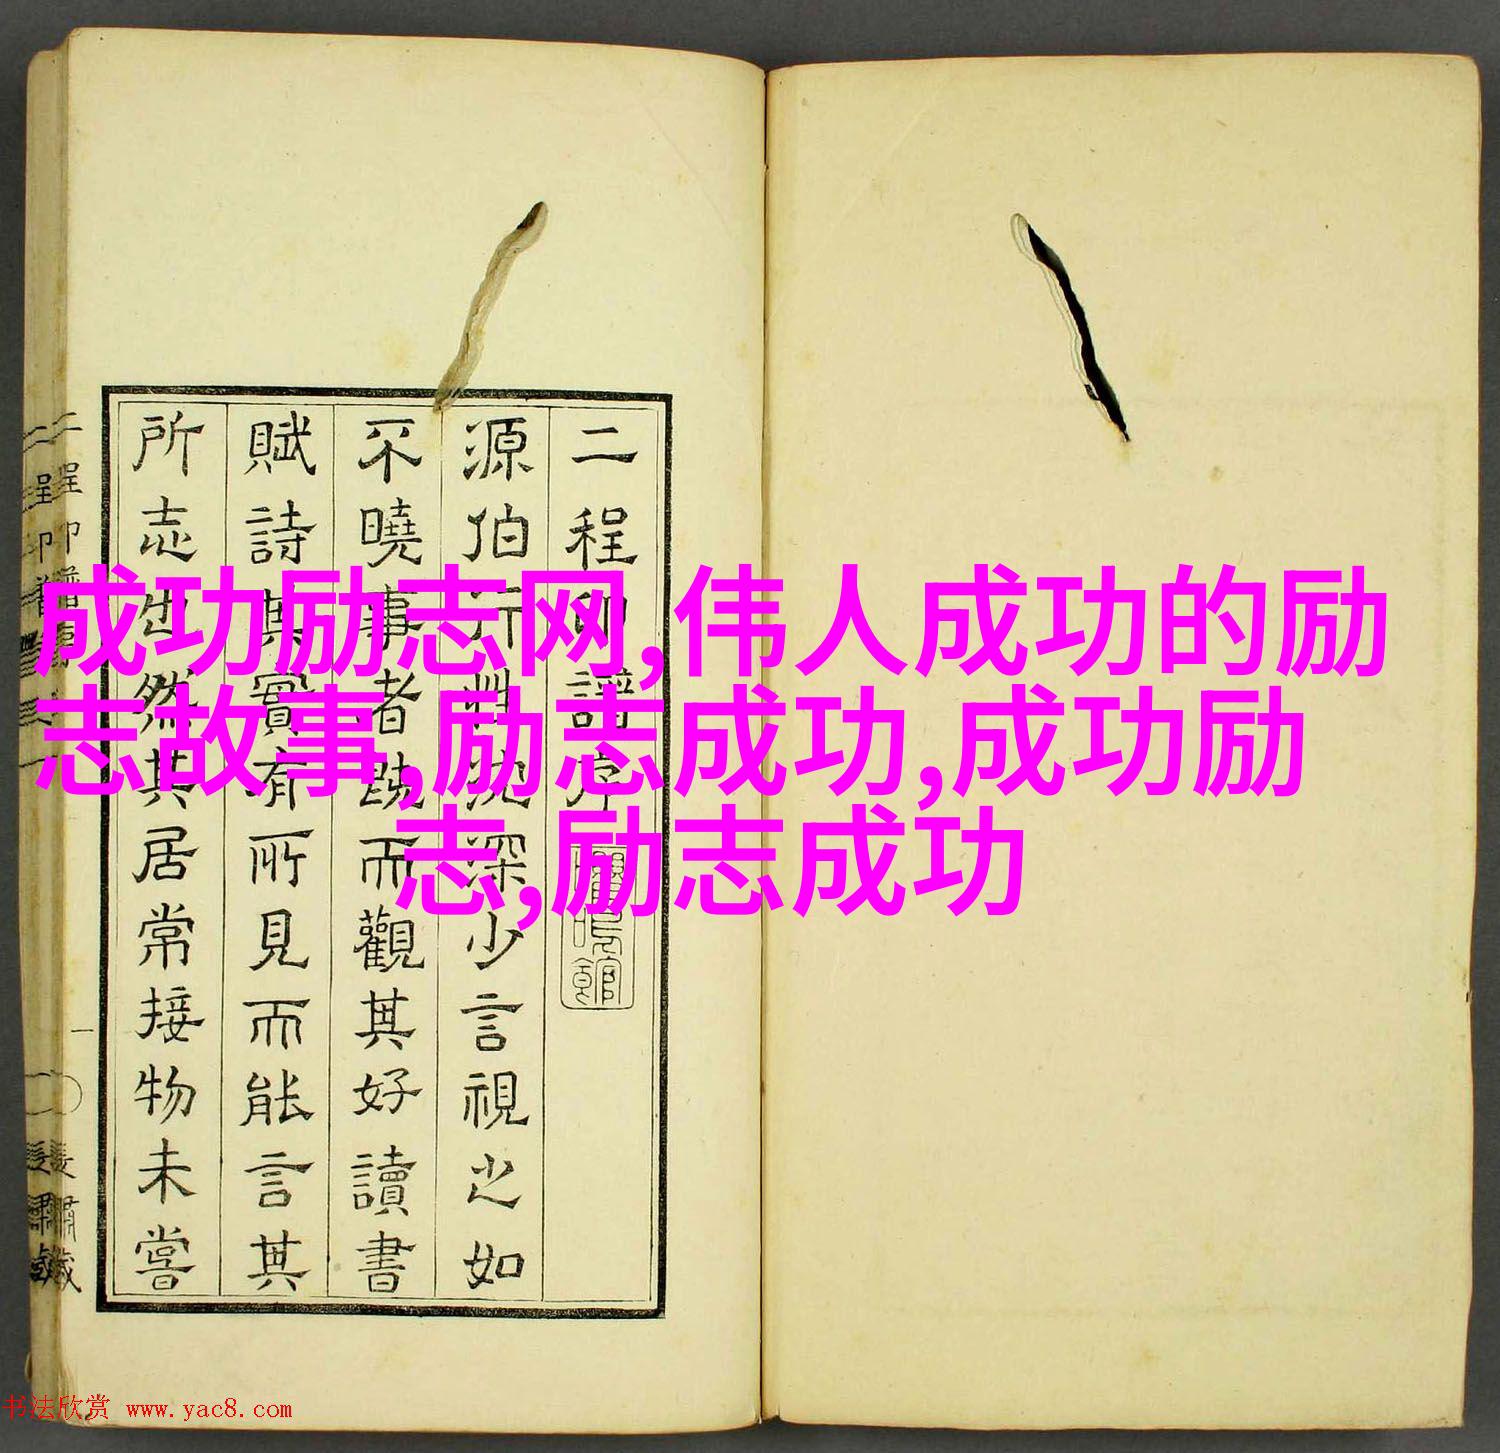 成功励志网,伟人成功的励
志故事,励志成功,成功励
志,励志成功
二程印譜序
源伯行 沈深少言視之如
不曉事者 而觀其好讀書
賦詩其實有所見而能言其
所志也然其居常接物未嘗
书法欣赏 www.yac8.com